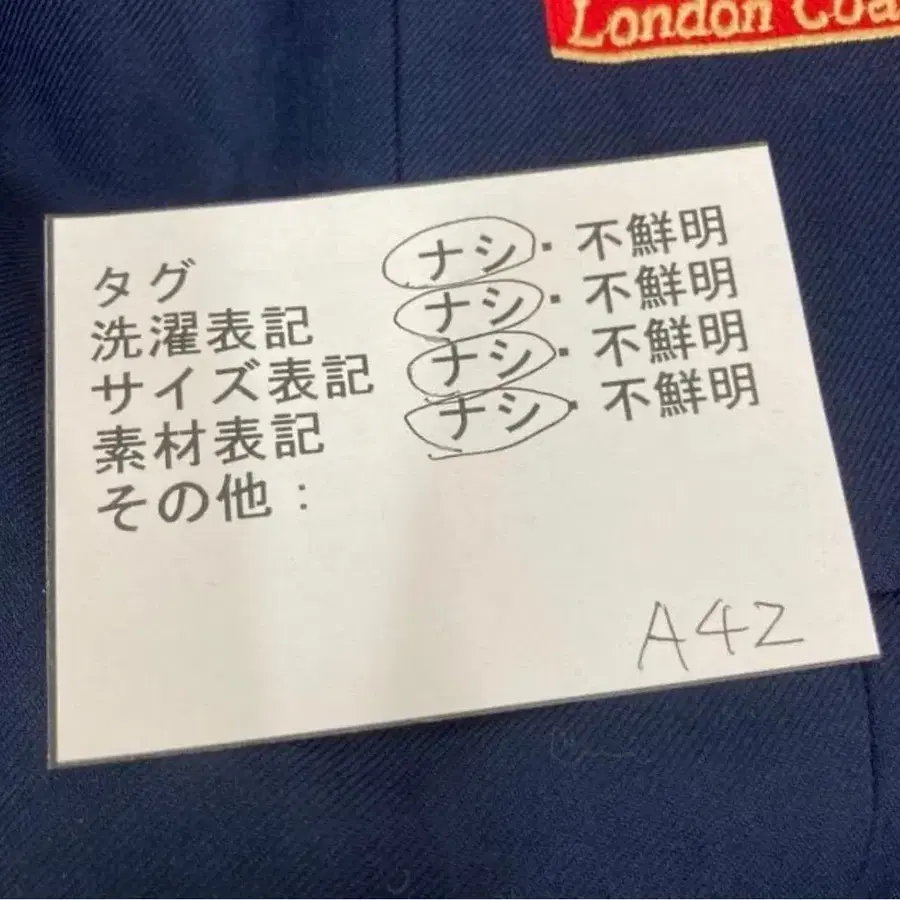 London Coa
タグ ナシ・不鮮明
洗濯表記 ナシ・不鮮明
サイズ表記 ナシ・不鮮明
素材表記 ナシ・不鮮明
その他：
A42